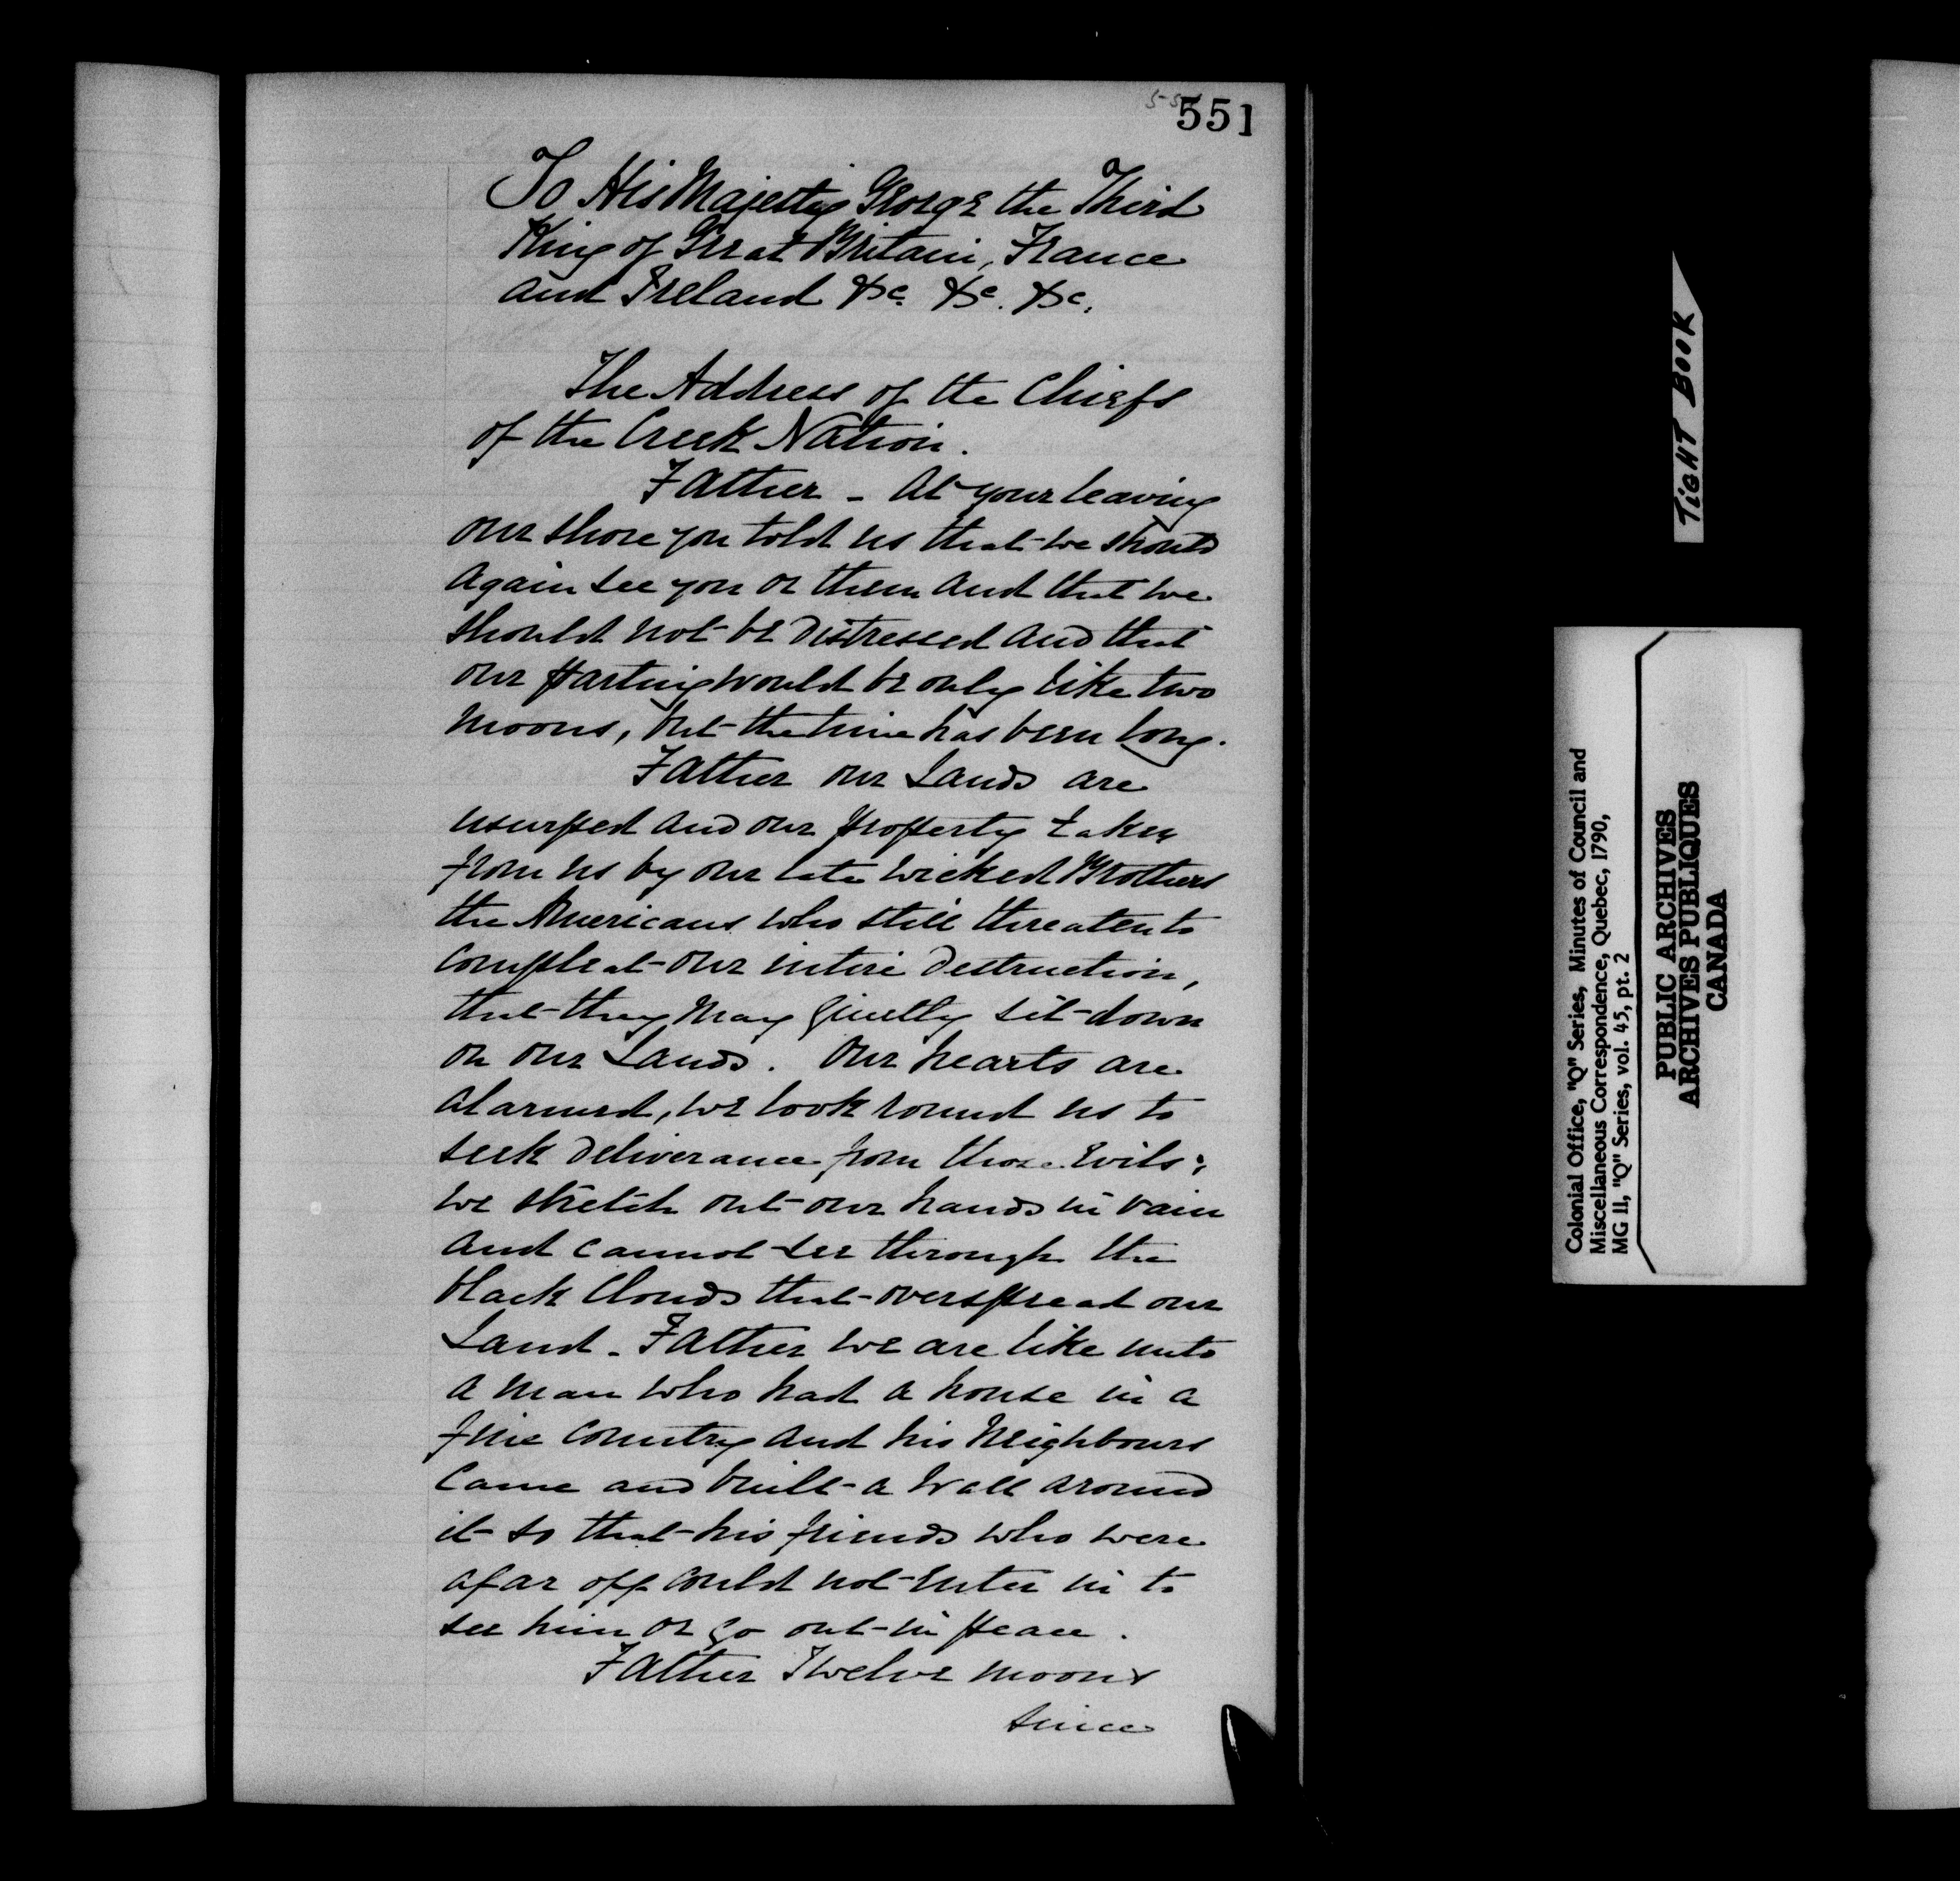 551
To His Majesty George the Third
King of Great Britain, France
and Ireland &c. &c. &c.
The Address of the Chiefs
of the Creek Nation.
Father - At your leaving
our shore you told us that we should
again see you or them and that we
should not be distressed and that
our parting would be only like two
moons, but the time has been long.
Father our Lands are
usurped and our property taken
from us by our late wicked Brothers
the Americans who still threaten to
compleat our intire destruction,
that they may quietly sit down
on our Lands. Our hearts are
alarmed, we look round us to
seek deliverance from those Evils;
we stretch out our hands in vain
and cannot see through the
black Clouds that overspread our
Land - Father we are like unto
a man who had a house in a
fine Country and his Neighbours
came and built a wall around
it so that his friends who were
afar off could not enter in to
see him or go out in peace.
Father Twelve moons
since
TIGHT BOOK
Colonial Office, "Q" Series, Minutes of Council and
Miscellaneous Correspondence, Quebec, 1790,
MG 11, "Q" Series, vol. 45, pt. 2
PUBLIC ARCHIVES
ARCHIVES PUBLIQUES
CANADA